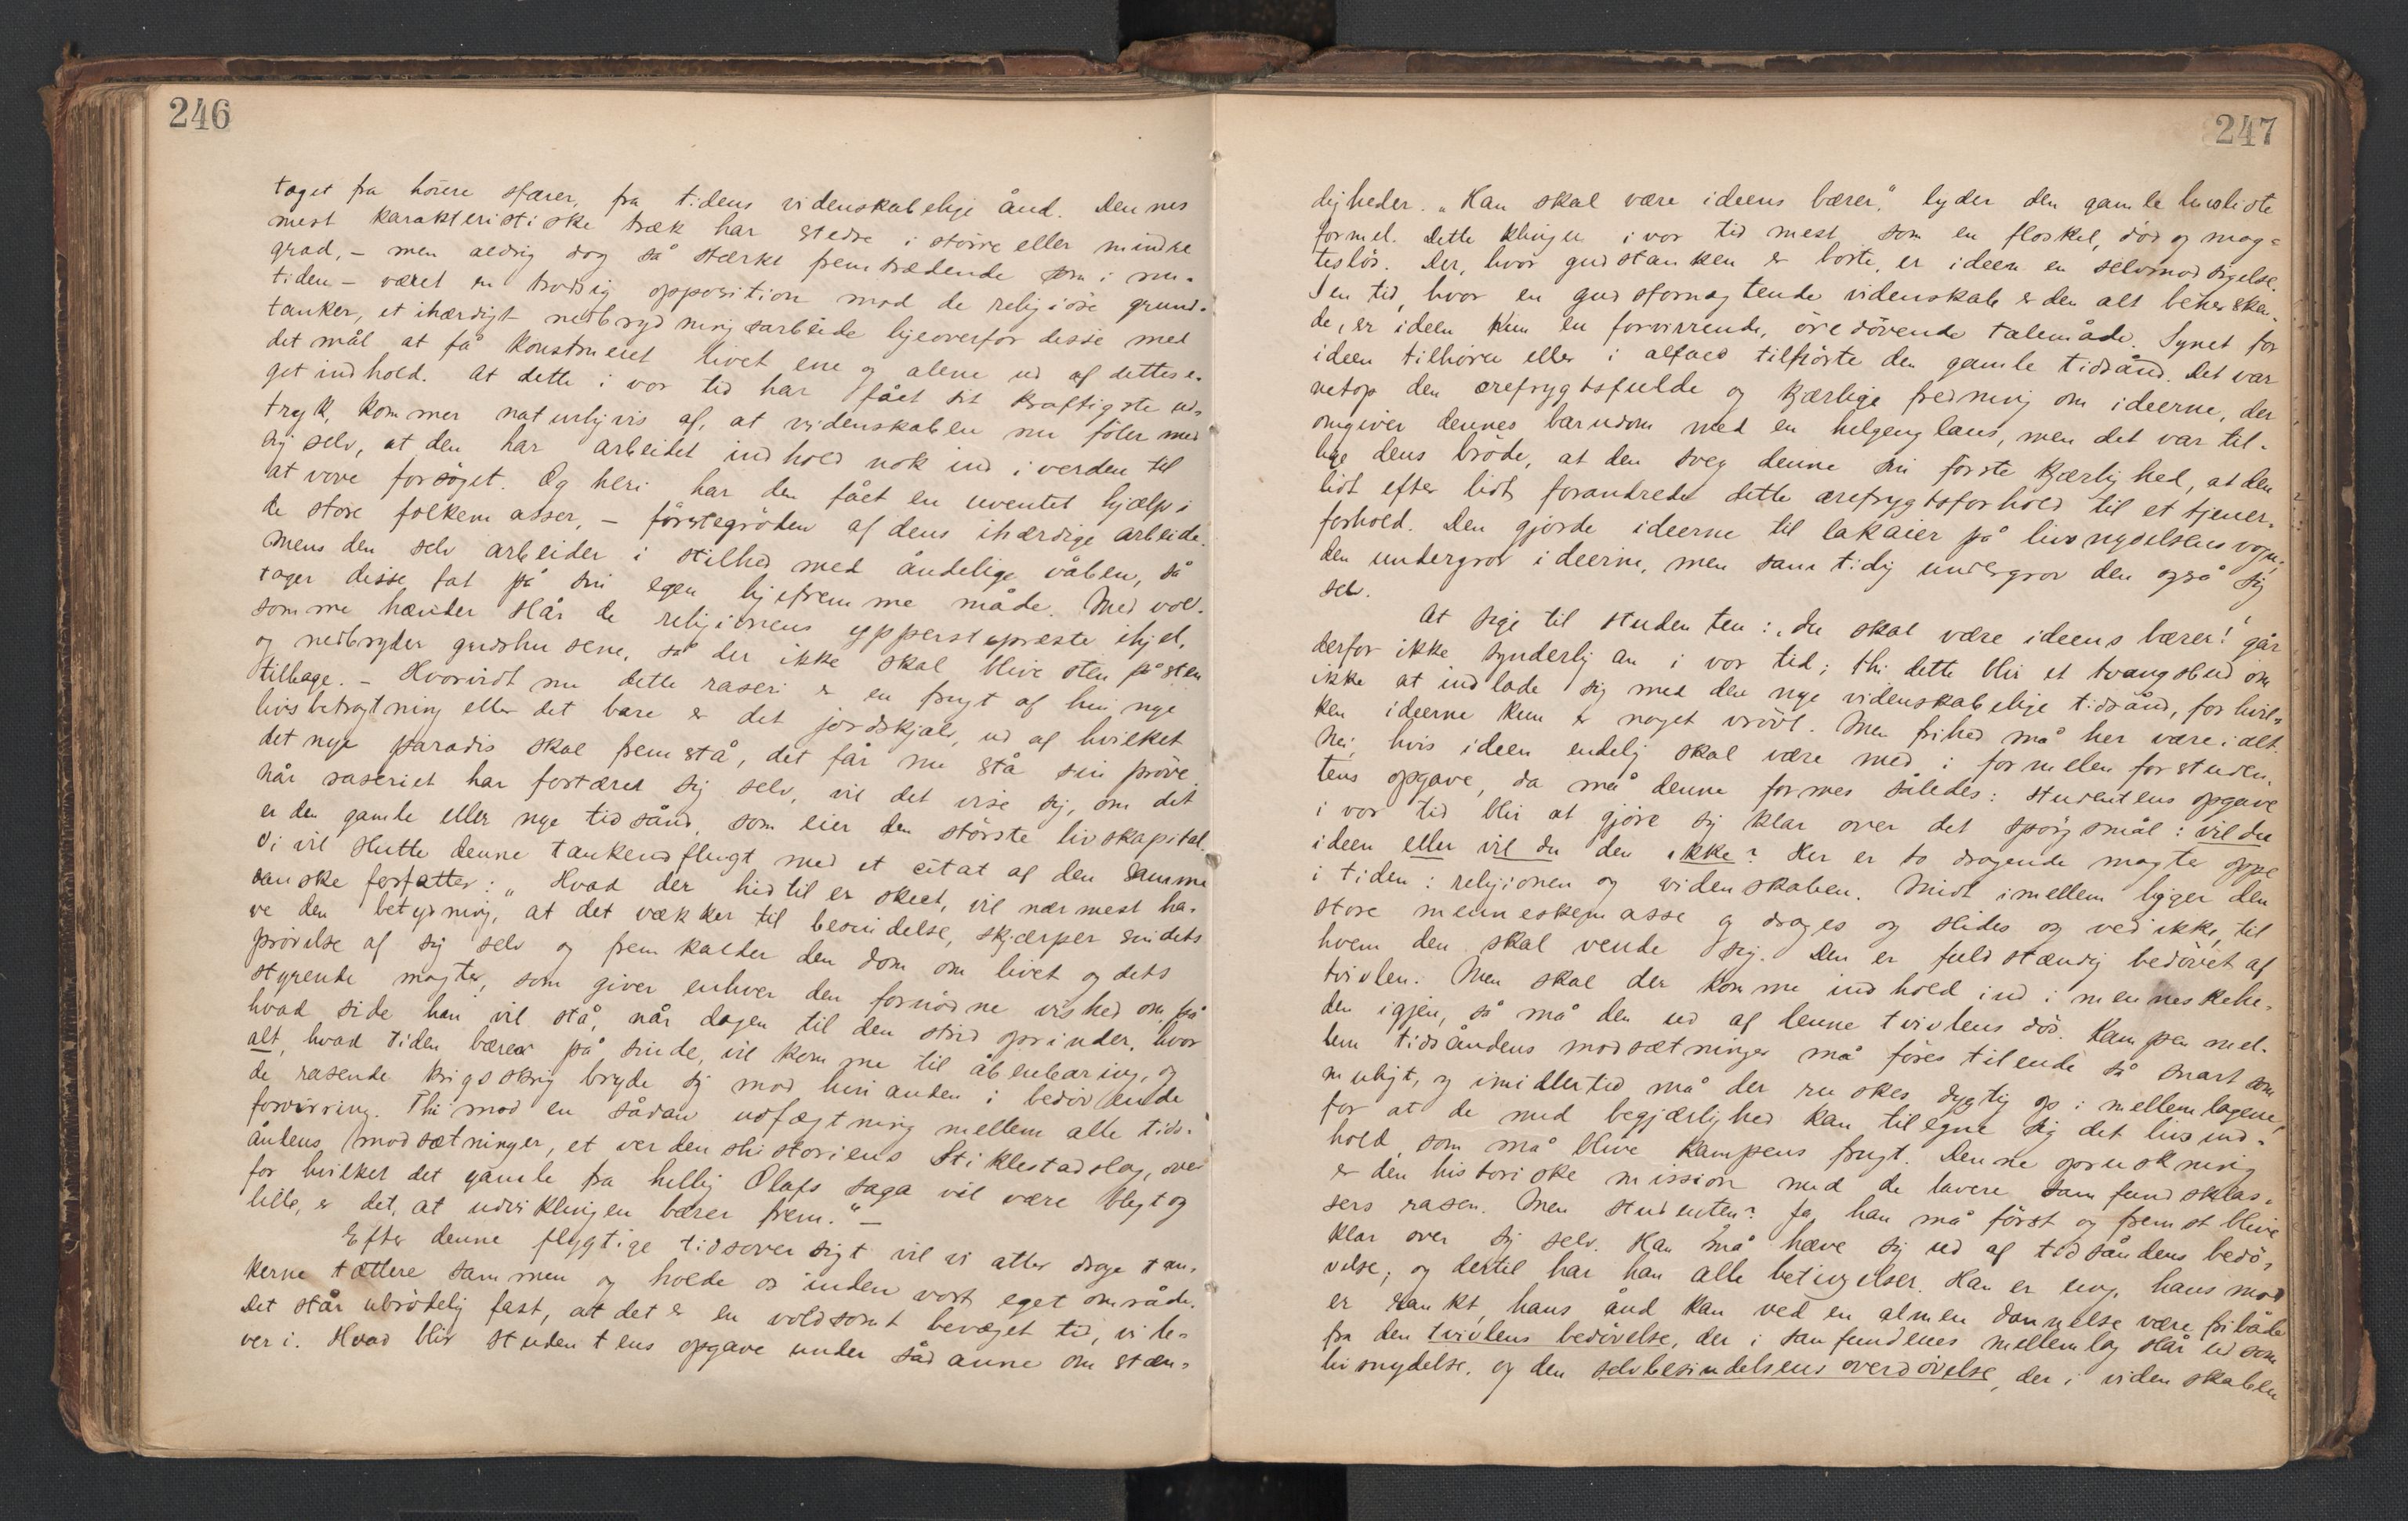 246
taget fra höiere sfærer, fra tidens videnskabelige ånd. Dennes
mest karakteristiske træk har stedse i större eller mindre
grad, – men aldrig dog så stærkt fremtrædende som i nu-
tiden – været en trodsig opposition mod de religiöse grund-
tanker, et ihærdigt nedbrydningsarbeide ligeoverfor disse med
det mål at få konstrueret livet ene og alene ud af dettes e-
get indhold. At dette i vor tid har fået sit kraftigste ud-
tryk, kommer naturligvis af, at videnskaben nu föler med
sig selv, at den har arbeidet indhold nok ind i verden til
at vove forsöget. Og heri har den fået en uventet hjælp i
de store folkemasser, – förstegröden af dens ihærdige arbeide.
Mens den selv arbeider i stilhed med åndelige våben, så
tager disse fat på sin egen ligefremme måde. Med vold-
somme hænder slår de religionens ypperstepræste ihjel,
og nedbryder gudshusene, så der ikke skal blive sten på sten
tilbage. – Hvorvidt nu dette raseri er en frugt af hin nye
livsbetragtning eller det bare er det jordskjælv, ud af hvilket
det nye paradis skal fremstå, det får nu stå sin pröve.
Når raseriet har fortæret sig selv, vil det vise sig, om det
er den gamle eller nye tidsånd, som eier den störste livskapital.
Vi vil slutte denne tankeudflugt med et citat af den samme
danske forfatter: „Hvad der hidtil er skeet, vil nærmest ha-
ve den betydning, at det vækker til besindelse, skjærper sindets
prövelse af sig selv og fremkalder den dom om livet og dets
styrende magter, som giver enhver den fornödne vished om, på
hvad side han vil stå, når dagen til den strid oprinder, hvor
alt, hvad tiden bærer på sinde, vil komme til åbenbaring, og
de rasende krigsskrig bryde sig mod hinanden i bedövende
forvirring. Thi mod en sådan udfægtning mellem alle tids-
åndens modsætninger, et verdenshistoriens Stiklestadslag, over
for hvilket det gamle fra hellig Olafs saga vil være blegt og
lille, er det, at udviklingen bærer frem.“ –
Efter denne flygtige tidsoversigt vil vi atter drage tan-
kerne tættere sammen og holde os inden vort eget område.
Det står ubrödelig fast, at det er en voldsomt bevæget tid, vi le-
ver i. Hvad blir studentens opgave under sådanne omstæn-
247
digheder. „Han skal være ideens bærer,“ lyder den gamle
formel. Dette klinger i vor tid mest som en floskel, död og mag-
teslös. Der, hvor gudstanken er borte, er ideen en selvmodsigelse.
I en tid, hvor en gudsfornægtende videnskab er den alt beherska-
de, er ideen kun en forvirrende, öredövende talemåde. Synet for
ideen tilhörer eller i alfald tilhörte den gamle tidsånd. Det var
netop den ærefrygtsfulde og kjærlige fredning om ideerne, der
omgiver dennes barndom med en helgenglans, men det var til-
lige dens bröde, at den sveg denne sin förste kjærlighed, at den
lidt efter lidt forandrede dette ærefrygtsforhold til et tjener-
forhold. Den gjorde ideerne til lakaier på livsnydelsens vogn;
den undergrov ideerne, men samtidig undergrov den også sig
selv.
At sige til studenten: „du skal være ideens bærer!“ går
derfor ikke synderlig an i vor tid; thi dette blir et tvangsbud om
ikke at indlade sig med den nye videnskabelige tidsånd, for hvil-
ken ideerne kun er noget vrövl. Men frihed må her være i alt.
Nei, hvis ideen endelig skal være med i formelen for studen-
tens opgave, da må denne formes således: studentens opgave
i vor tid blir at gjöre sig klar over det spörgsmål: vil du
ideen eller vil du den ikke? Her er to dragende magter oppe
i tiden: religionen og videnskaben. Midt imellem ligger den
store menneskemasse og drages og slides og ved ikke, til
hvem den skal vende sig. Den er fuldstændig bedövet af
tvivlen. Men skal der komme indhold ind i menneskehe-
den igjen, så må den ud af denne tvivlens död. Kampen mel-
lem tidsåndens modsætninger må föres tilende så snart som
muligt, og imidlertid må der ruskes dygtig op i mellemlagene,
for at de med begjærlighed kan tilegne sig det livsind-
hold, som må blive kampens frugt. Denne opruskning
er den historiske mission med de lavere samfundsklas-
sers rasen. Men studenten? Ja, han må först og fremst blive
klar over sig selv. Han må hæve sig ud af tidsåndens bedö-
velse, og dertil har han alle betingelser. Han er ung, hans mod
er rankt, hans ånd kan ved en almen dannelse være fri både
fra den tvivlens bedövelse, der i samfundenes mellemlag slår ud som
livsnydelse, og den selvbesindelsens overdövelse, der i videnskaben